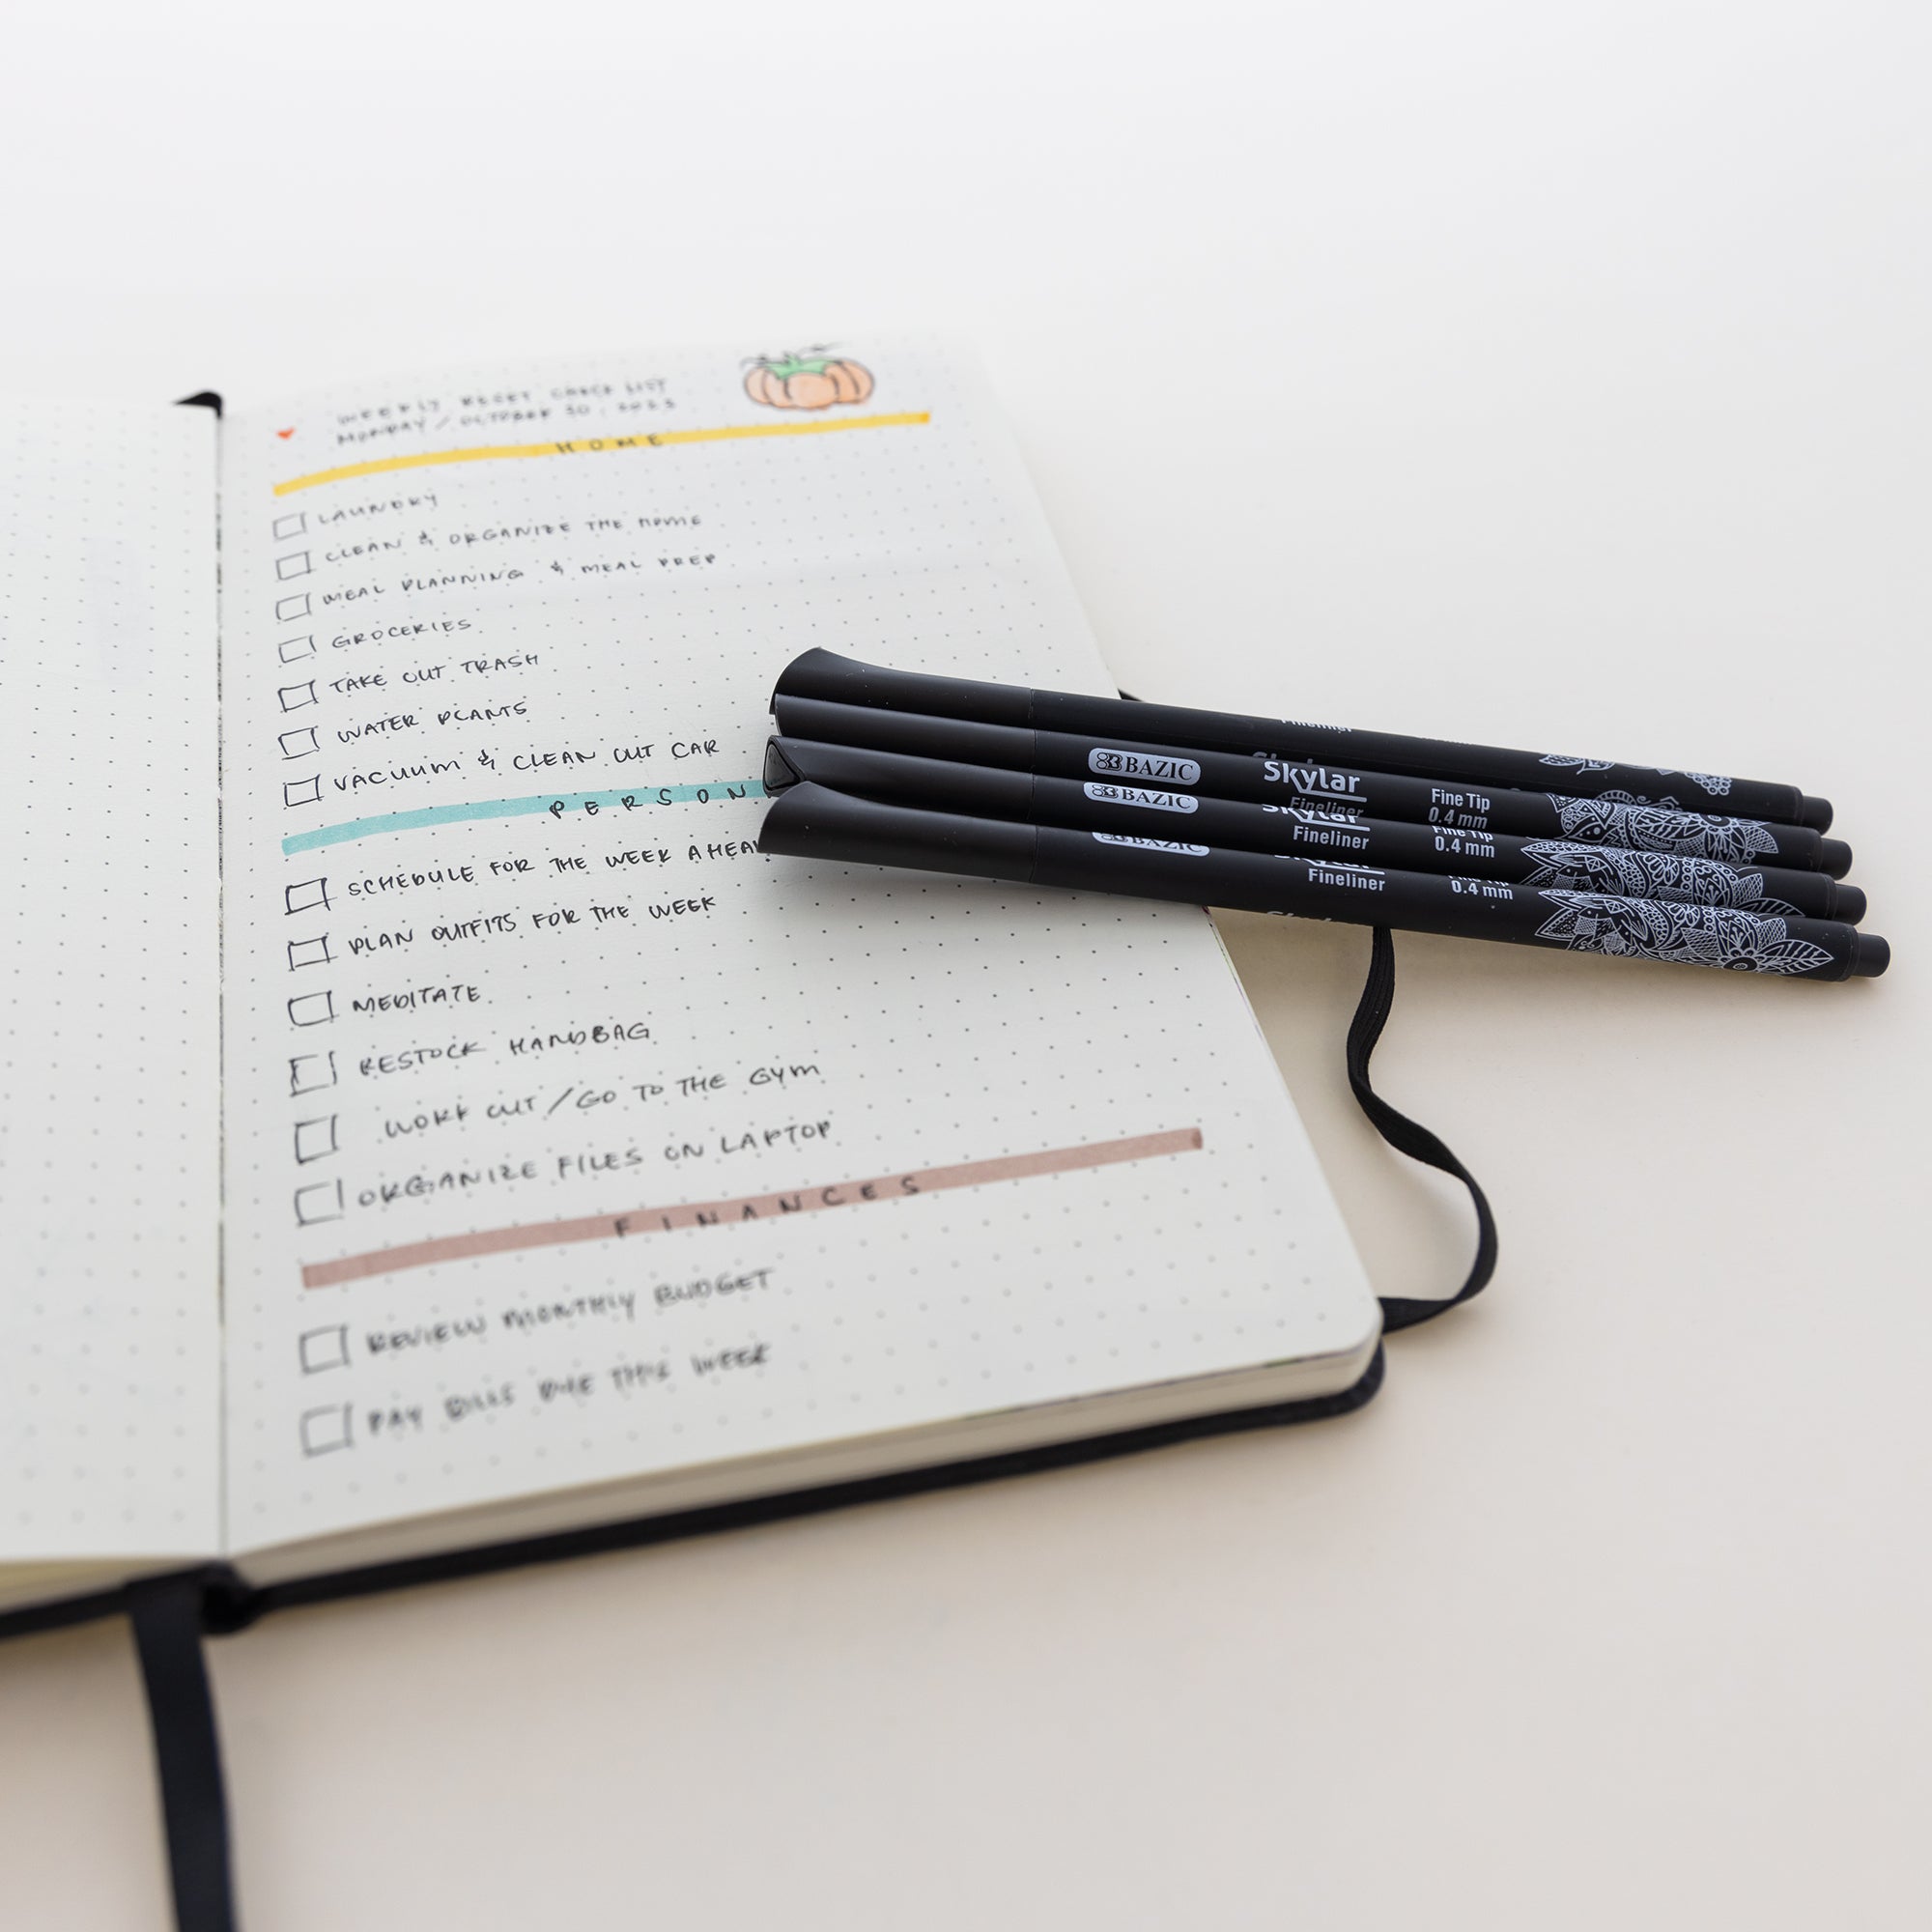 WEEKLY RESET CHECK LIST
MONDAY / OCTOBER 30, 2023
HOME
LAUNDRY
CLEAN & ORGANIZE THE HOME
MEAL PLANNING & MEAL PREP
GROCERIES
TAKE OUT TRASH
WATER PLANTS
VACUUM & CLEAN OUT CAR
PERSON
SCHEDULE FOR THE WEEK AHEA
PLAN OUTFITS FOR THE WEEK
MEDITATE
RESTOCK HANDBAG
WORK OUT/GO TO THE GYM
ORGANIZE FILES ON LAPTOP
FINANCES
REVIEW MONTHLY BUDGET
PAY BILLS DUE THIS WEEK
Fineliner
BAZIC Skylar Fineliner Fine Tip 0.4 mm
BAZIC Skylar Fineliner Fine Tip 0.4 mm
BAZIC Skylar Fineliner 0.4 mm